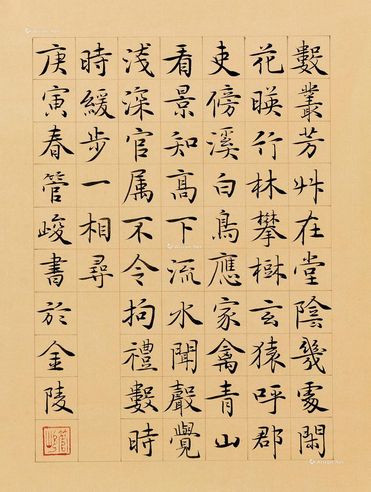 數叢芳艸在堂陰幾處閑
花暎行林攀樹玄猿呼郡
吏傍溪白鳥應家禽青山
看景知高下流水聞聲覺
淺深官属不令拘禮數時
時緩步一相尋
庚寅春管峻書於金陵
管峻